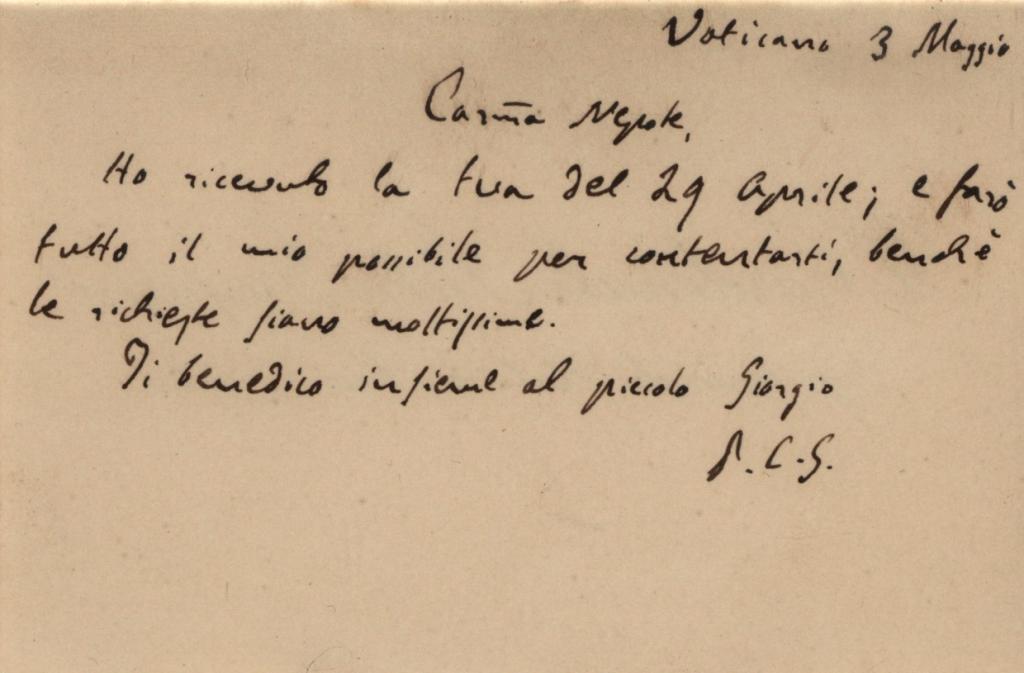 Vaticano 3 Maggio
Carma Nepote,
Ho ricevuto la tua del 29 aprile; e farò
tutto il mio possibile per contentarti, benchè
le richieste siano moltissime.
Ti benedico insieme al piccolo Giorgio
P.C.G.